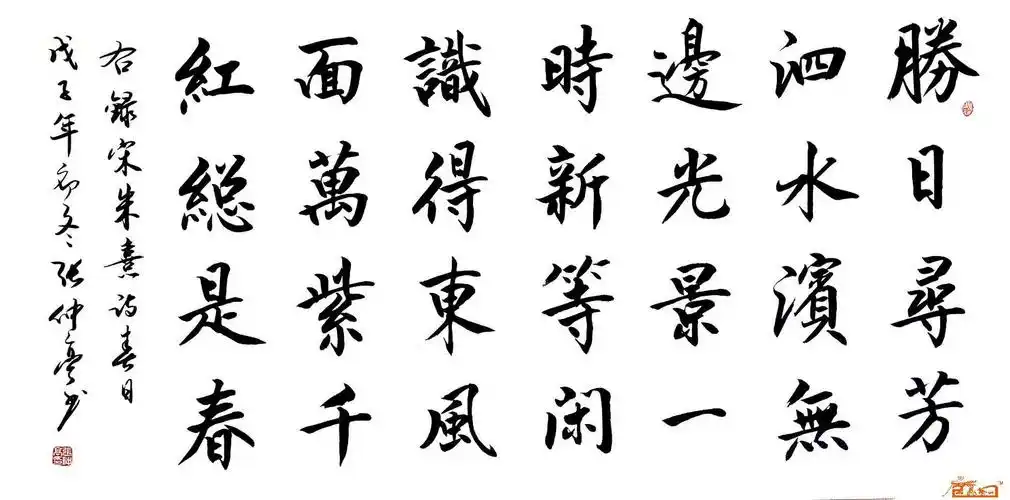 勝日尋芳
泗水濱無
邊光景一
時新等閑
識得東風
面萬紫千
紅総是春
右錄宋朱熹詩春日
戊子年初冬張仲亭書